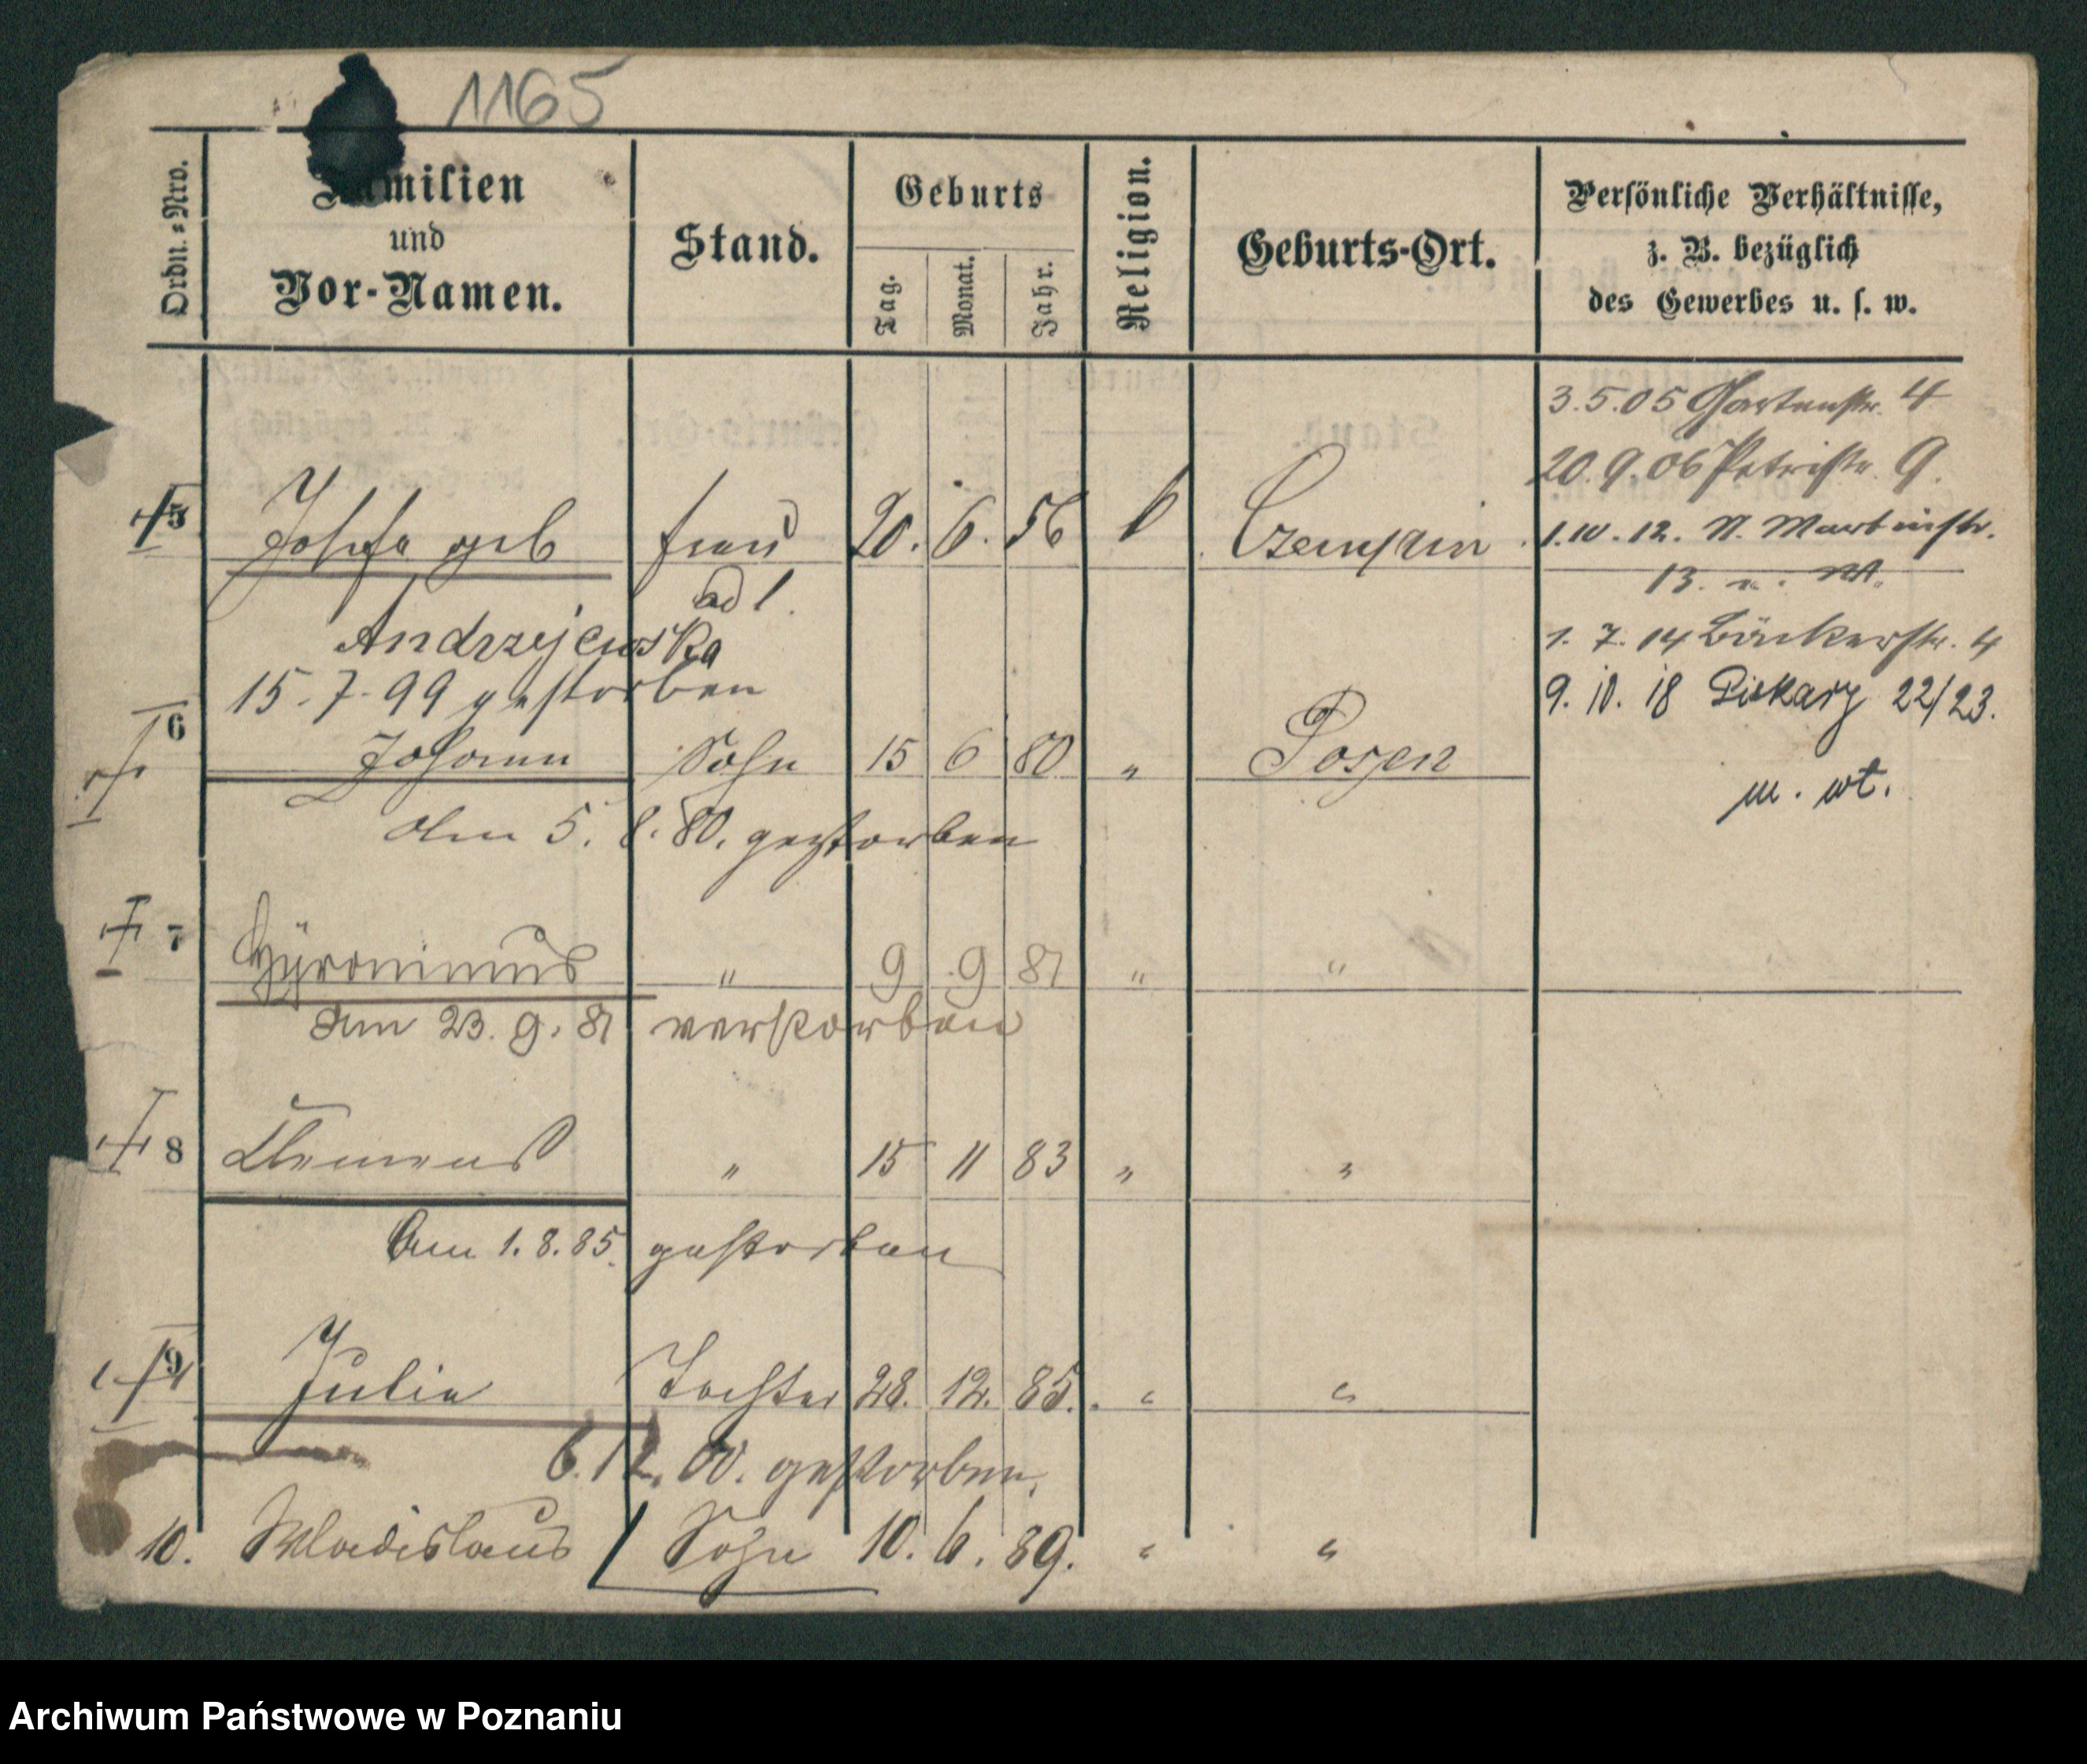 1165
Ordn.=Nro.
Familien
und
Vor-Namen.
Stand.
Geburts
Tag.
Monat.
Jahr.
Religion.
Geburts-Ort.
Persönliche Verhältnisse,
z. B. bezüglich
des Gewerbes u. s. w.
3.5.05 Gartenstr. 4
20.9.06 Petristr. 9.
5 Josefa geb Frau 20. 6. 56 k Czempin
ad 1.
Andrzejewska
15.7.99 gestorben
1.10.12. St. Martinstr.
13.
1. 7. 14 Bäckerstr. 4
9. 10. 18 Piekary 22/23.
m. wt.
6 Johann Sohn 15 6 80 " Posen
Am 5. 8. 80. gestorben
7 Hyronimus " 9 9 81 " "
Am 23. 9. 81 verstorben
8 Clemens " 15 11 83 " "
Am 1. 8. 85. gestorben
9 Julie Tochter 28. 12. 85. " "
6. 12. 00. gestorben.
10. Wladislaus Sohn 10. 6. 89. " "
Archiwum Państwowe w Poznaniu